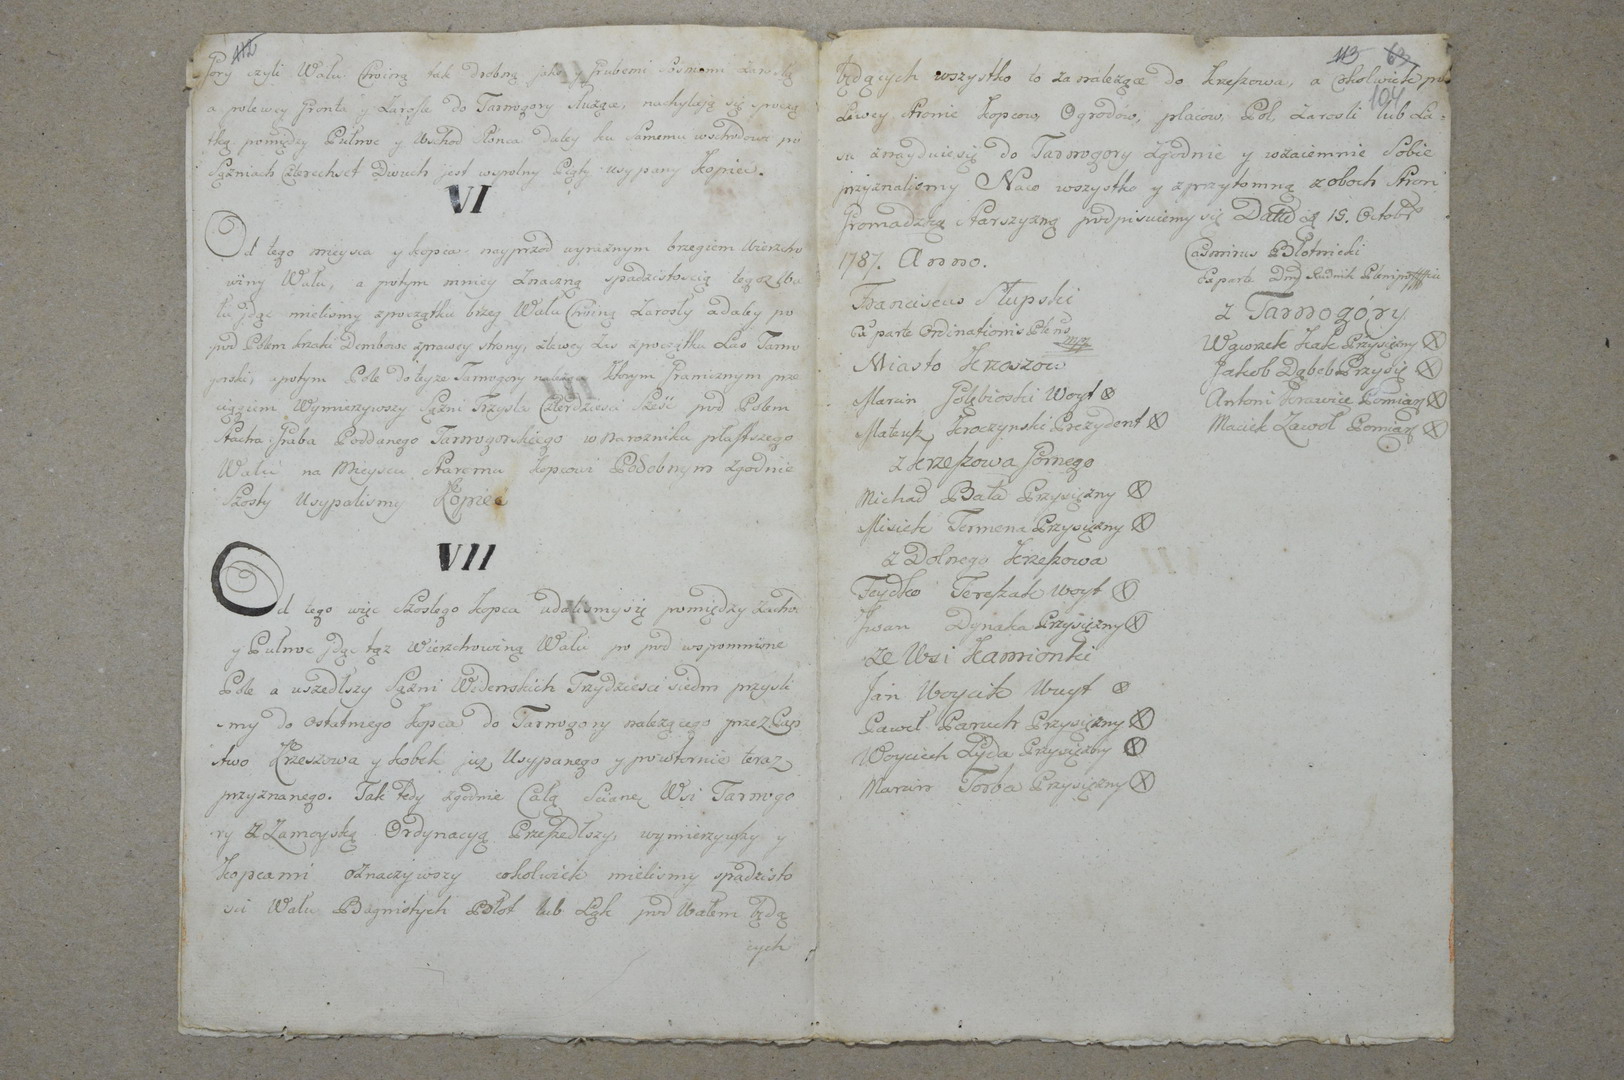 112
Gory czyli Wału Choiną tak drobną jako y Grubemi Sosnami Zarosłą
a polewey Gronta y Zarosla do Tarnogory służące, nachylaią się począ
tką pomiędzy Pułnoc y Wschod Słonca daley ku samemu wschodowi po
Sążniach Czterechset Dwuch jest wspolny Piąty usypany Kopiec.
VI
Od tego mieysca y kopca nayprzod wyraznym brzegiem Wierzcho
winy Wału, a potym mniey znaczną spadzistoscią tegoż Wa
łu jdąc mielismy zpoczątku brzeg Wału Choiną Zarosły a daley po
pod Polem krzaki Dembowe zprawey strony, zlewey Las zpoczątku Las Tarno
gorski, apotym Pole do teyze Tarnogory należące Ktorym Granicznym prze
ciągiem Wymierzywszy Sązni Trzysta Czterdziesci Szesć pod Polem
Stacha Graba Poddanego Tarnogorskiego w Narozniku płastszego
Wału na Mieyscu Staremu kopcowi Podobnym Zgodnie
Szosty Usypalismy Kopiec
VII
Od tego więc Szostego kopca udalismy się pomiędzy Zachod
y Pułnoc jdąc tąz Wierzchowiną Wału po pod wspomnione
Pole a uszedłszy Sązni Wedenskich Trzydziesci siedm przyśli
smy do ostatniego kopca do Tarnogory nalezącego przez
stwo Krzeszowa y Kobek już Usypanego y powtornie teraz
przyznanego. Tak tedy zgodnie Całą Scianę Wsi Tarnogo
ry z Zamoyską Ordynacyą Przeszedłszy, wymierzywszy y
Kopcami oznaczywszy cokolwiek mielismy spadzisto
sci Wału Bagnistych Błot lub Łąk pod Wałem będą
cych
113 67
104
będących wszystko to za należące do Krzeszowa, a Cokolwiek po
Lewey stronie kopcow Ogrodów, placow, Pol, Zarosli lub La-
su znayduiesię do Tarnogory zgodnie y wzaiemnie Sobie
przyznalismy Naco wszystko y zprzytomną zoboch Stron
Gromadzką Starszyzną podpisuiemy się Datt 15. Octobr
1787. Anno.
Franciscus Słupski
Ex parte Ordinationis
mpp
Casimirus Błotnicki
Ex parte Rudnik
Miasto Krzeszow
Marcin Gołębioski Woyt
Mateusz Kroczynski Prezydent
z Krzeszowa Gornego
Michał Bała Przysięzny
Misiek Termena Przysięzny
z Dolnego Krzeszowa
Feydko Tereszak Woyt
Jwan Dynaka Przysięzny
Ze Wsi Kamionki
Jan Woycik Woyt
Paweł Paruch Przysięzny
Woyciech Łyda Przysięzny
Marcin Torba Przysięzny
z Tarnogóry
Wawrzek Kak Przysięzny
Jakob Dąbek Przysię
Antoni Krawiec Pomiar
Maciek Zawoł Pomiar